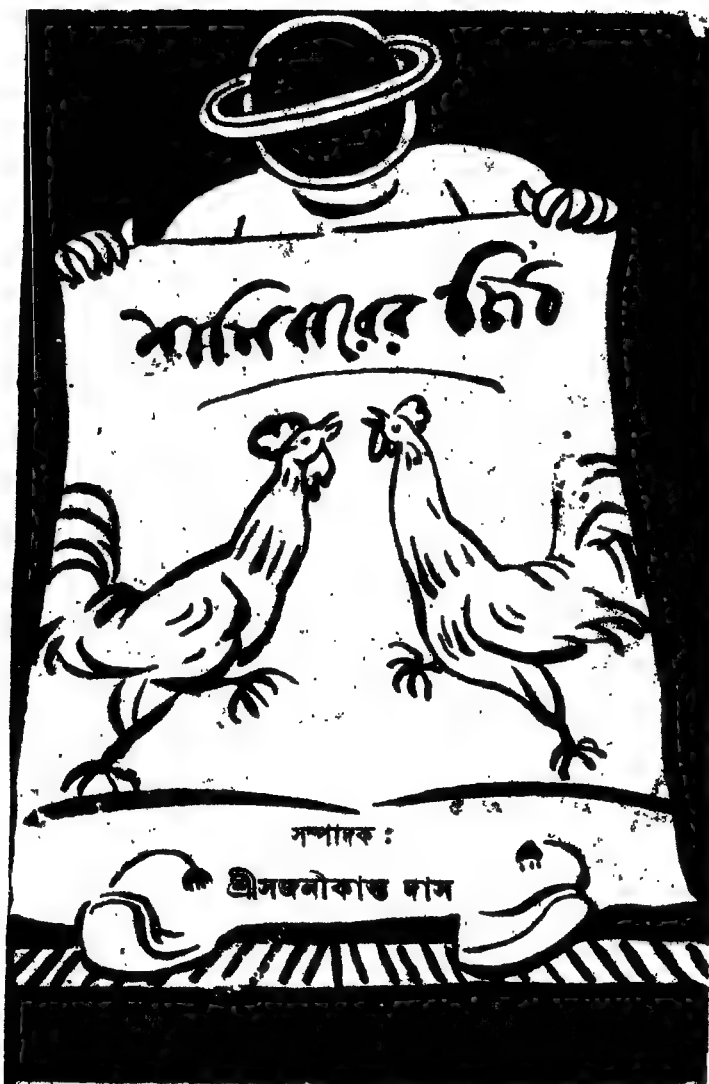 শনিবারের চিঠি
সম্পাদক :
শ্রীসজনীকান্ত দাস